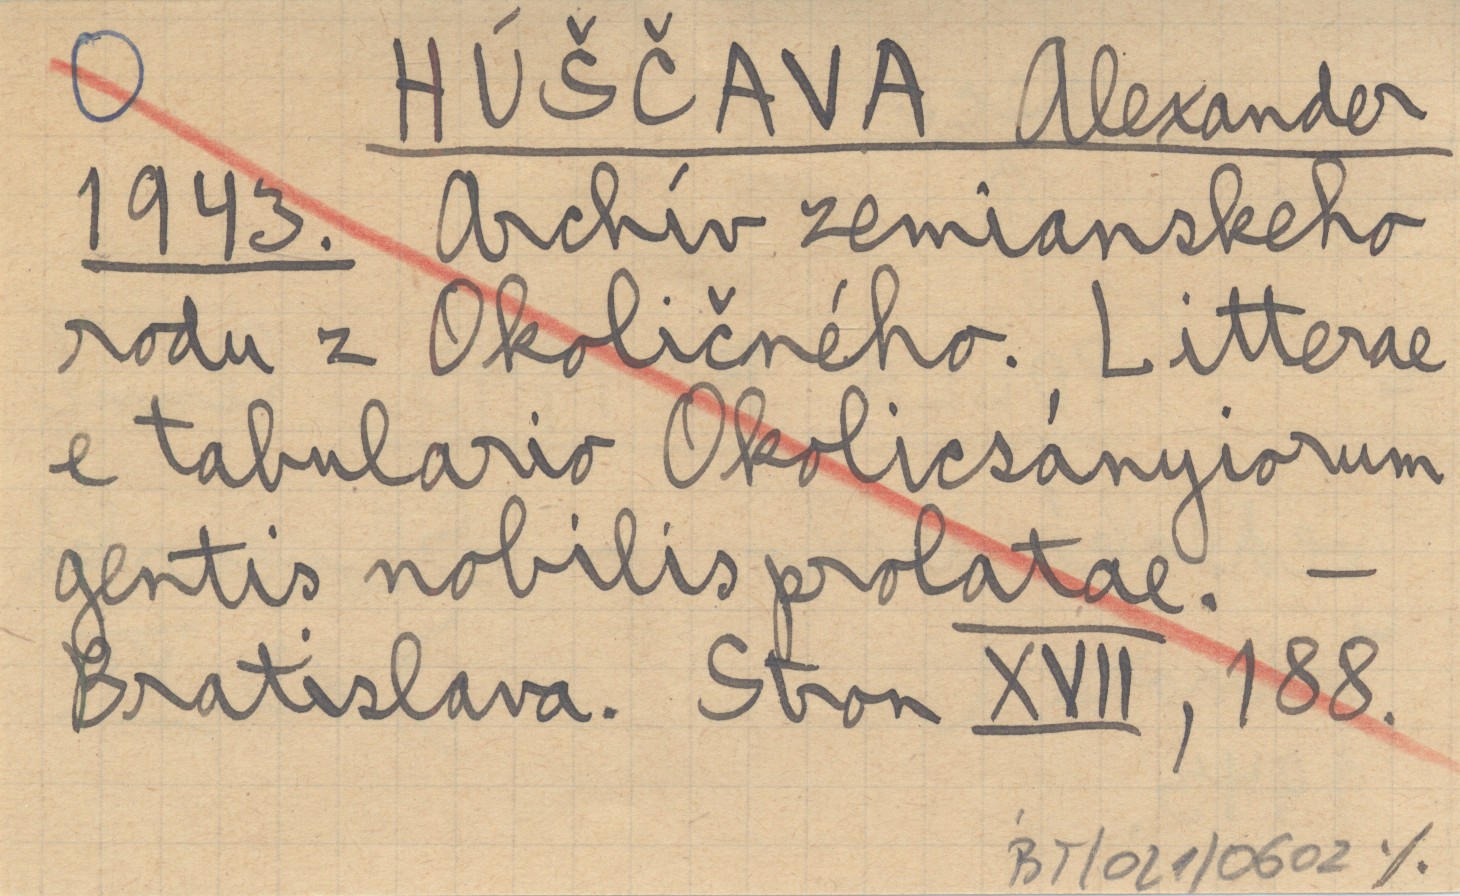 O HÚŠČAVA Alexander
1943. Archív zemianskeho
rodu z Okoličného. Litterae
e tabulario Okolicsányiorum
gentis nobilis prolatae. —
Bratislava. Stron XVII, 188.
BT/021/0602 ·/.